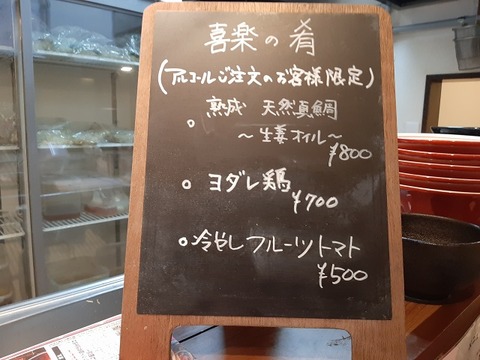 喜楽の肴
(アルコールご注文のお客様限定)
○ 熟成 天然真鯛
～生姜オイル～
¥800
○ ヨダレ鶏
¥700
○ 冷やしフルーツトマト
¥500